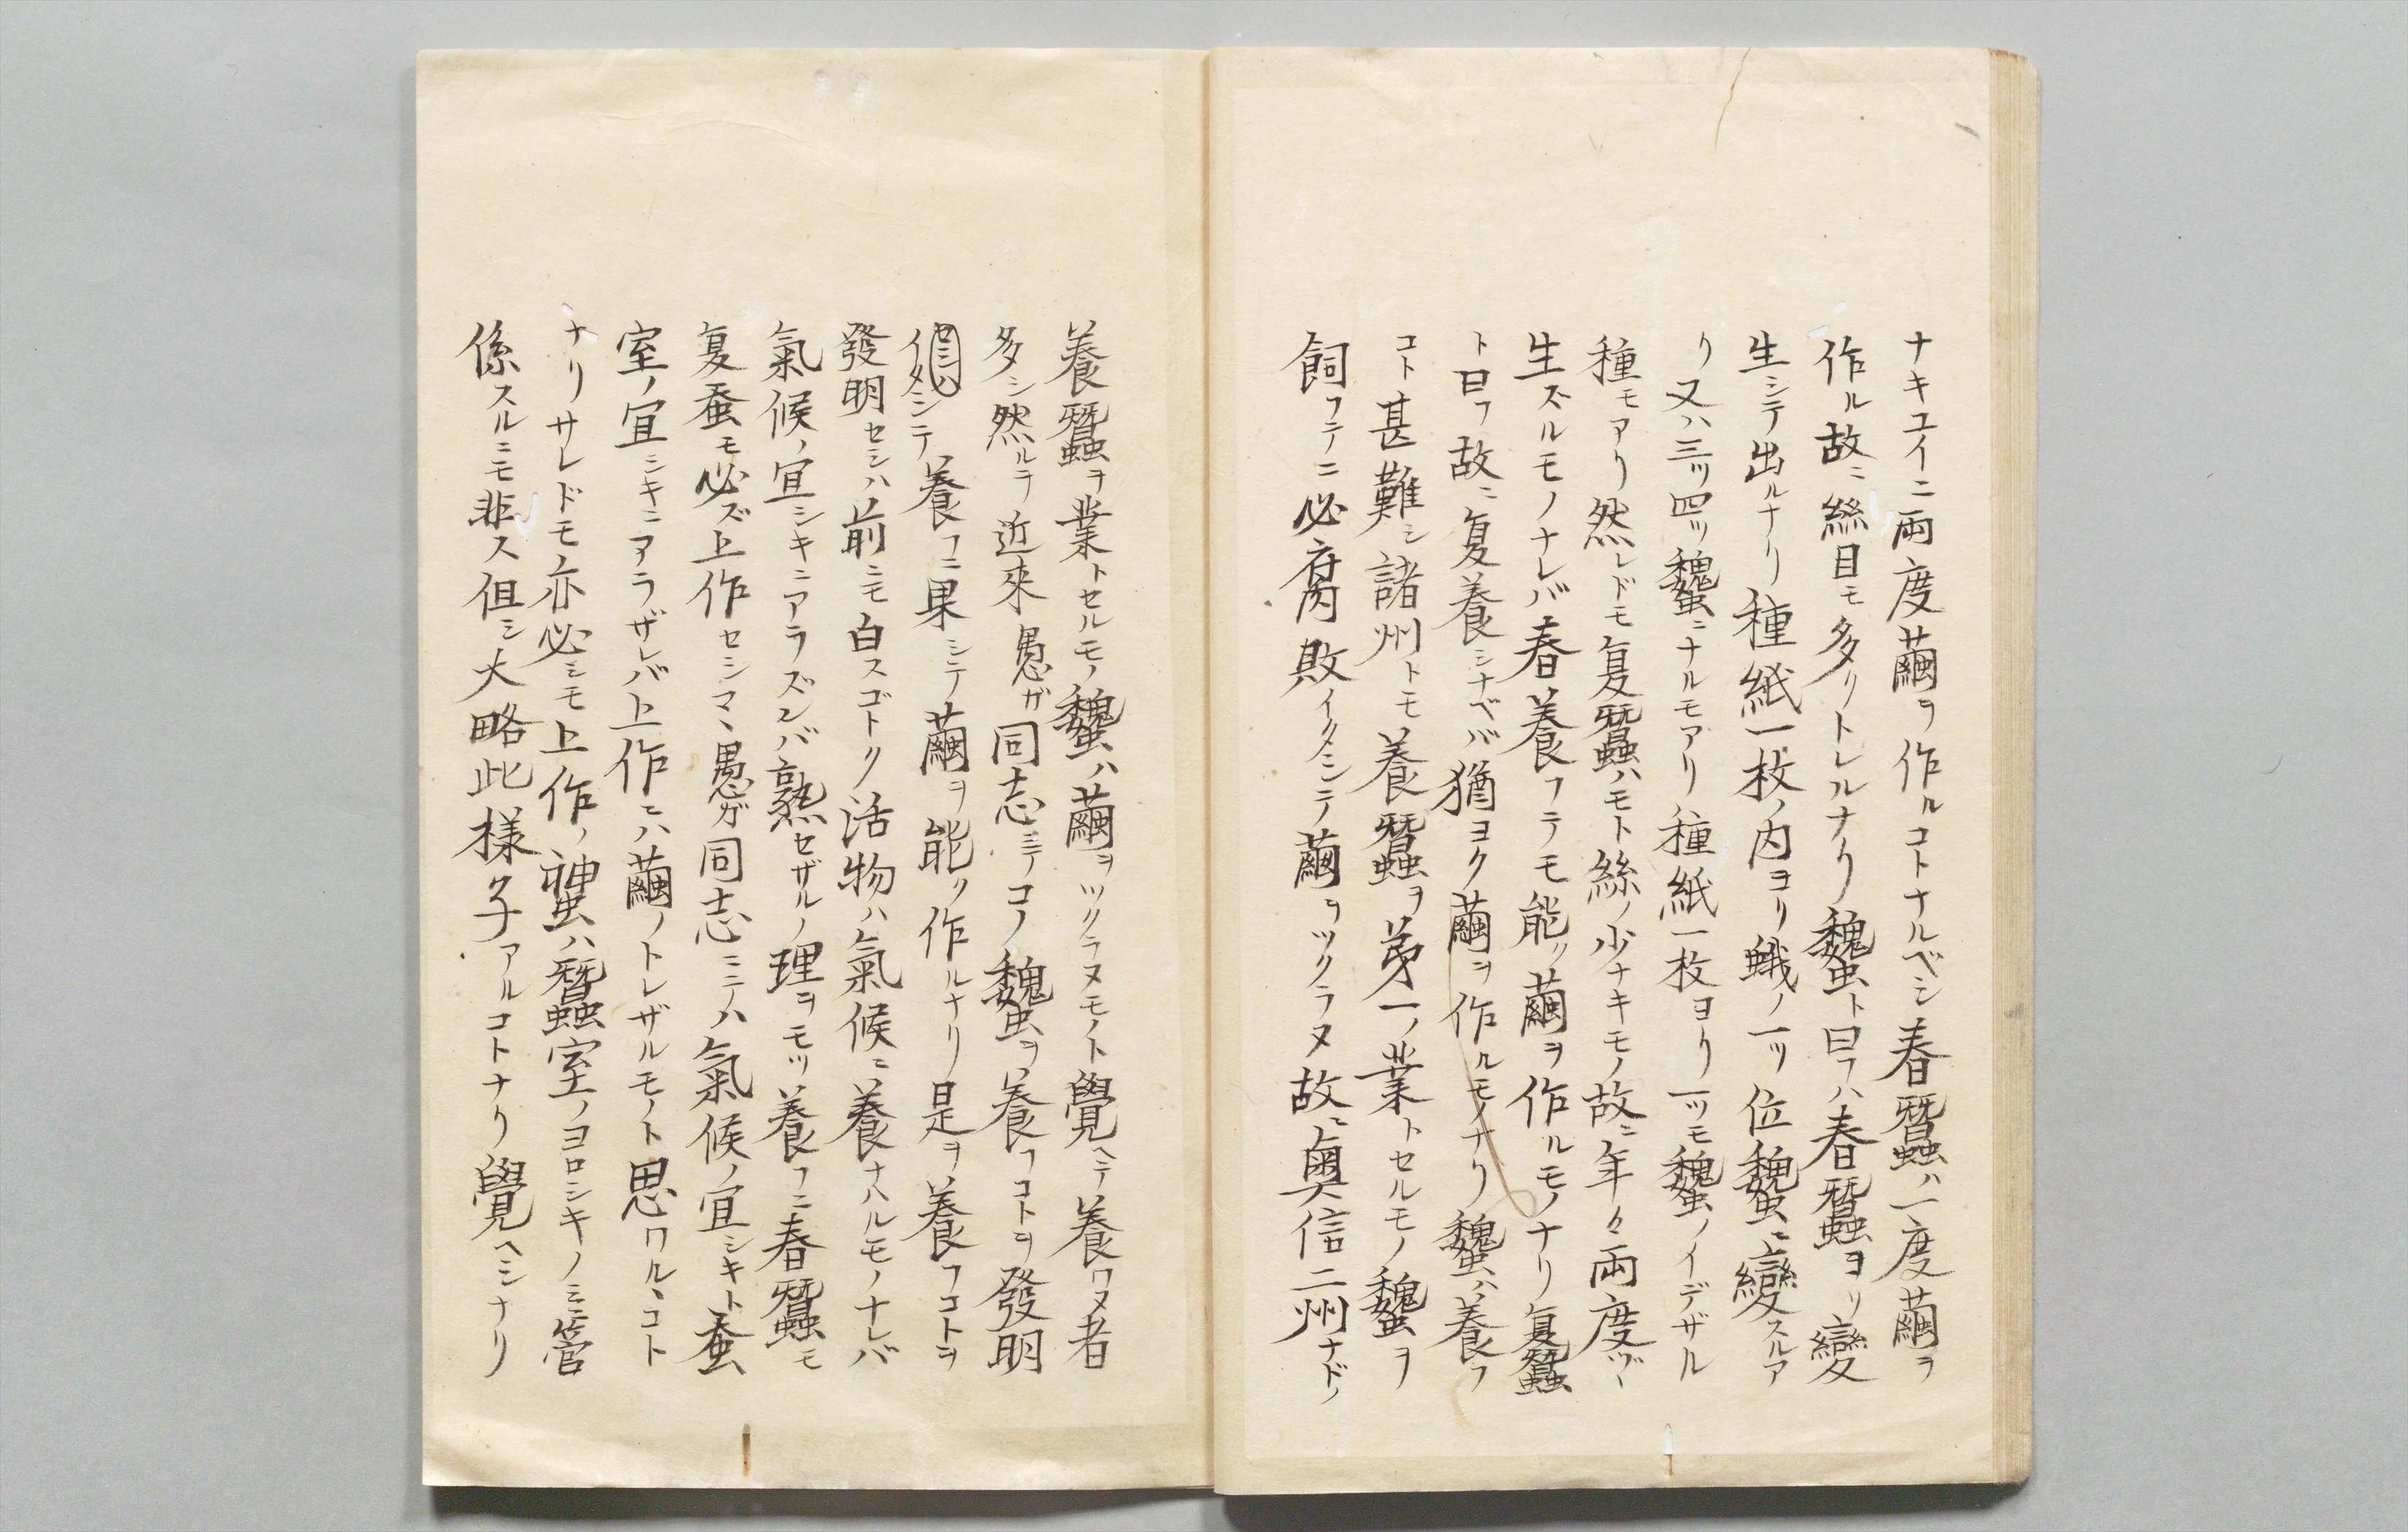 ナキユイニ両度繭ヲ作ルコトナルベシ春蠶ハ一度繭ヲ
作ル故ニ絲目モ多リトレルナリ魏蚕ト曰フハ春蠶ヨリ變
生シテ出ルナリ種紙一枚ノ内ヨリ蛾ノ一ツ位魏蚕ニ變スルア
リ又ハ三ツ四ツ魏蚕ニナルモアリ種紙一枚ヨリ一ツモ魏蚕ノイデザル
種モアリ然レドモ夏蠶ハモト絲ノ少ナキモノ故ニ年々両度ヅヽ
生ズルモノナレバ春養フテモ能ク繭ヲ作ルモノナリ夏蠶
ト曰フ故ニ夏養シナベバ猶ヨク繭ヲ作ルモノナリ魏蚕ハ養フ
コト甚難シ諸州トモ養蠶ヲ第一ノ業トセルモノ魏蚕ヲ
飼フテニ必腐敗イタシテ繭ヲツクラヌ故ニ奥信二州ナドノ
養蠶ヲ業トセルモノ魏蚕ハ繭ヲツクラヌモノト覺ヘテ養ワヌ者
多シ然ルヲ近來愚ガ同志ニテコノ魏蚕ヲ養フコトヲ發明
イタシテ養フニ果シテ繭ヲ能ク作ルナリ是ヲ養フコトヲ
發明セシハ前ニモ白スゴトク活物ハ氣候ニ養ナハルモノナレバ
氣候ノ宜シキニアラズンバ熟セザルノ理ヲモツ養フニ春蠶モ
夏蚕モ必ズ上作セシマヽ愚ガ同志ニニハ氣候ノ宜シキト蚕
室ノ宜シキニアラザレバ上作モハ繭ノトレザルモノト思ワルヽコト
ナリサレドモノ亦必シモ上作ノ神蚕ハ蠶室ノヨロシキノミニ管
係スルニモ非ス但シ大略此様子アルコトナリ覺ヘシナリ